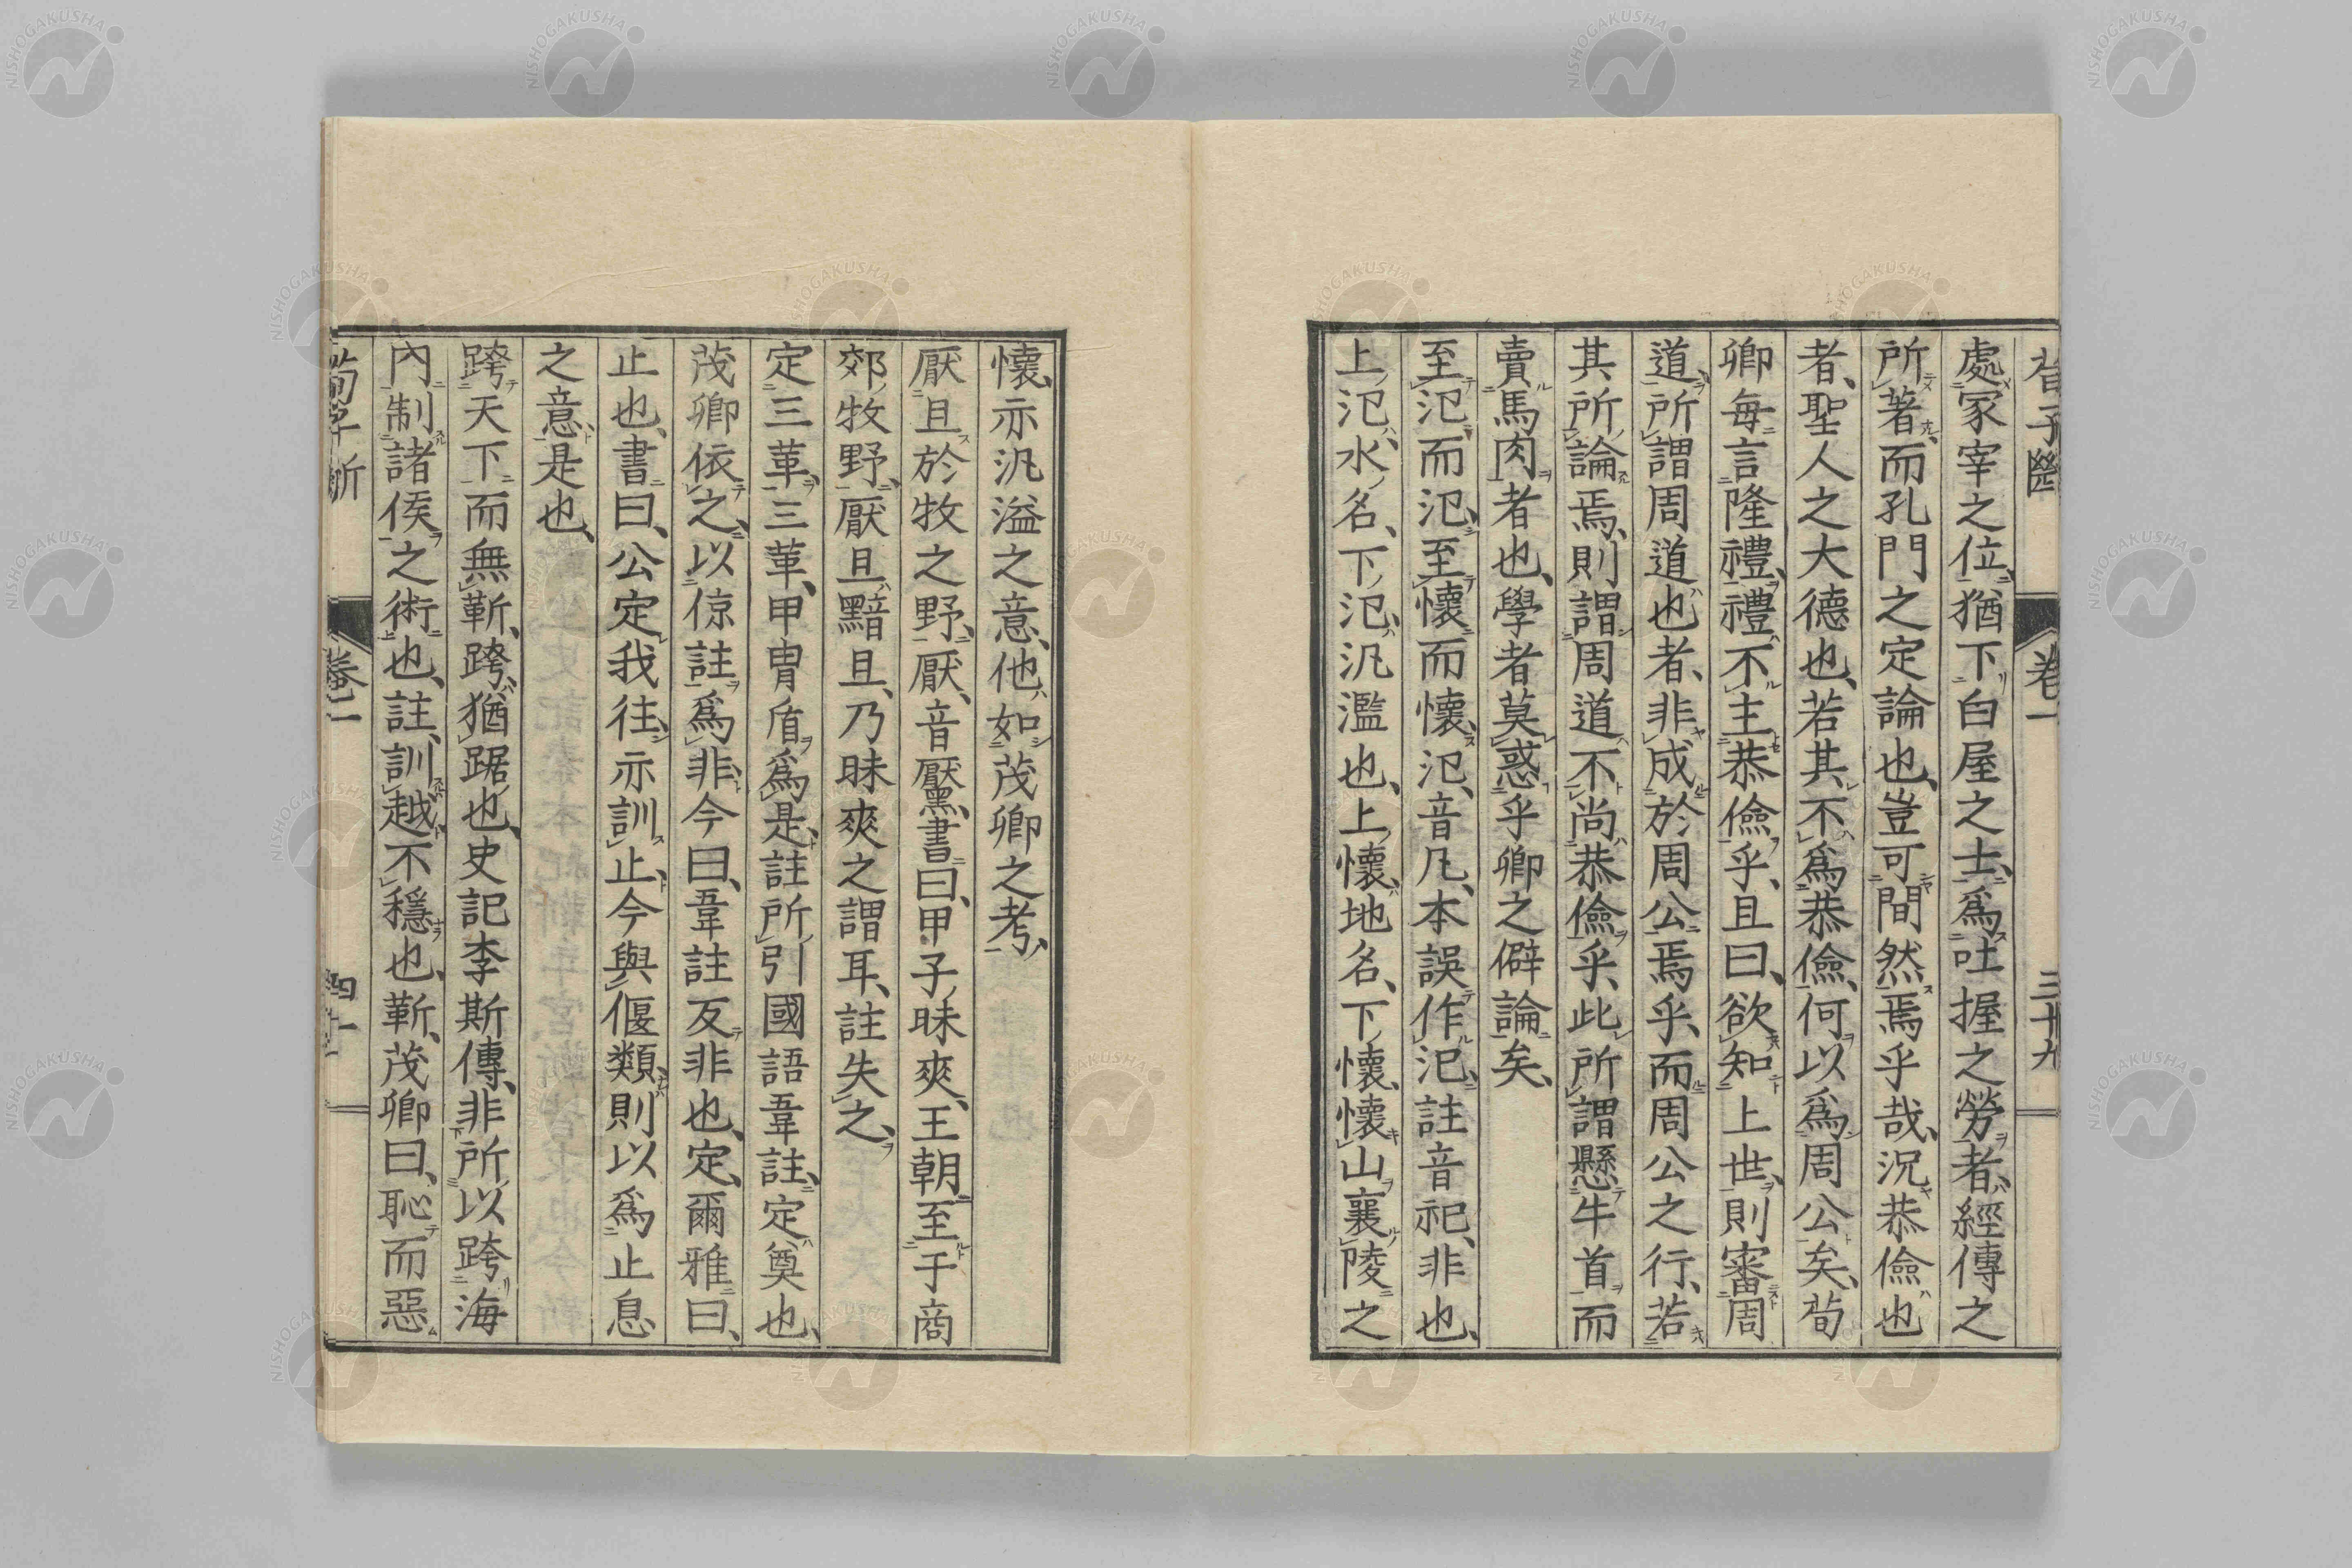 處冢宰之位、猶下白屋之士、爲吐握之勞者、經傳之
所著、而孔門之定論也、豈可間然焉乎哉、況恭儉也
者、聖人之大德也、若其不爲恭儉、何以爲周公矣、荀
卿每言隆禮、禮不主恭儉乎、且曰、欲知上世、則審周
道、所謂周道也者、非成於周公焉乎、而周公之行、若
其所論焉、則謂周道不尚恭儉乎、此所謂懸牛首而
賣馬肉者也、學者莫惑乎卿之僻論矣、
至氾而氾、至懷而懷、氾、音凡、本誤作汜、註音祀、非也、
上氾、水名、下氾、汎濫也、上懷、地名、下懷、懷山襄陵之
懷、亦汎溢之意、他如茂卿之考、
厭旦於牧之野、厭、音黶、書曰、甲子昧爽、王朝至于商
郊牧野、厭旦黯旦、乃昧爽之謂耳、註失之、
定三革、三革、甲冑盾爲是、註所引國語韋註、定奠也、
茂卿依之、以倞註爲非、今曰、韋註反非也、定、爾雅曰、
止也、書曰、公定我往、亦訓止、今與偃類、則以爲止息
之意是也、
跨天下而無蘄、跨猶踞也、史記李斯傳、非所以跨海
內制諸侯之術也、註、訓越不穩也、蘄、茂卿曰、恥而惡
卷一
三十九